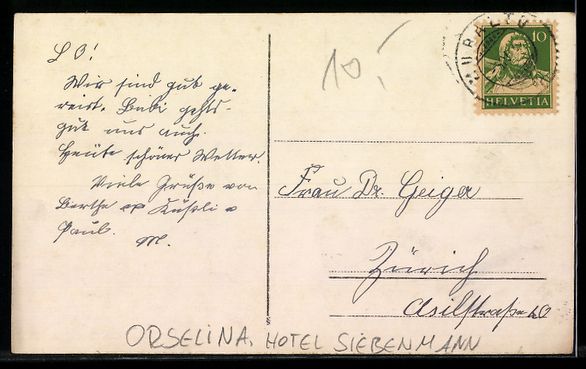 LO!
Wir sind gut ge-
reist. Bubi gehts
gut uns auch.
Heute schönes Wetter.
Viele Grüße von
Berthe
Paul.
M.
10.-
MURALTO
10
HELVETIA
Frau Dr. Geiger
Zürich
Asilstraße
ORSELINA, HOTEL SIEBENMANN